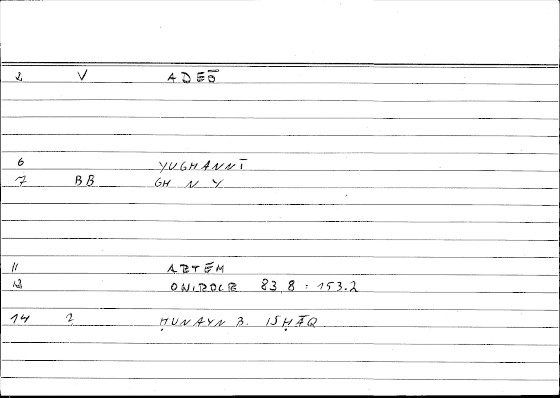 2 V ADEŌ
6 YUGHANNĪ
7 BB GH N Y
11 ARTĒM
12 83.8 = 153.2
14 2 ḤUNAYN B. ISḤĀQ